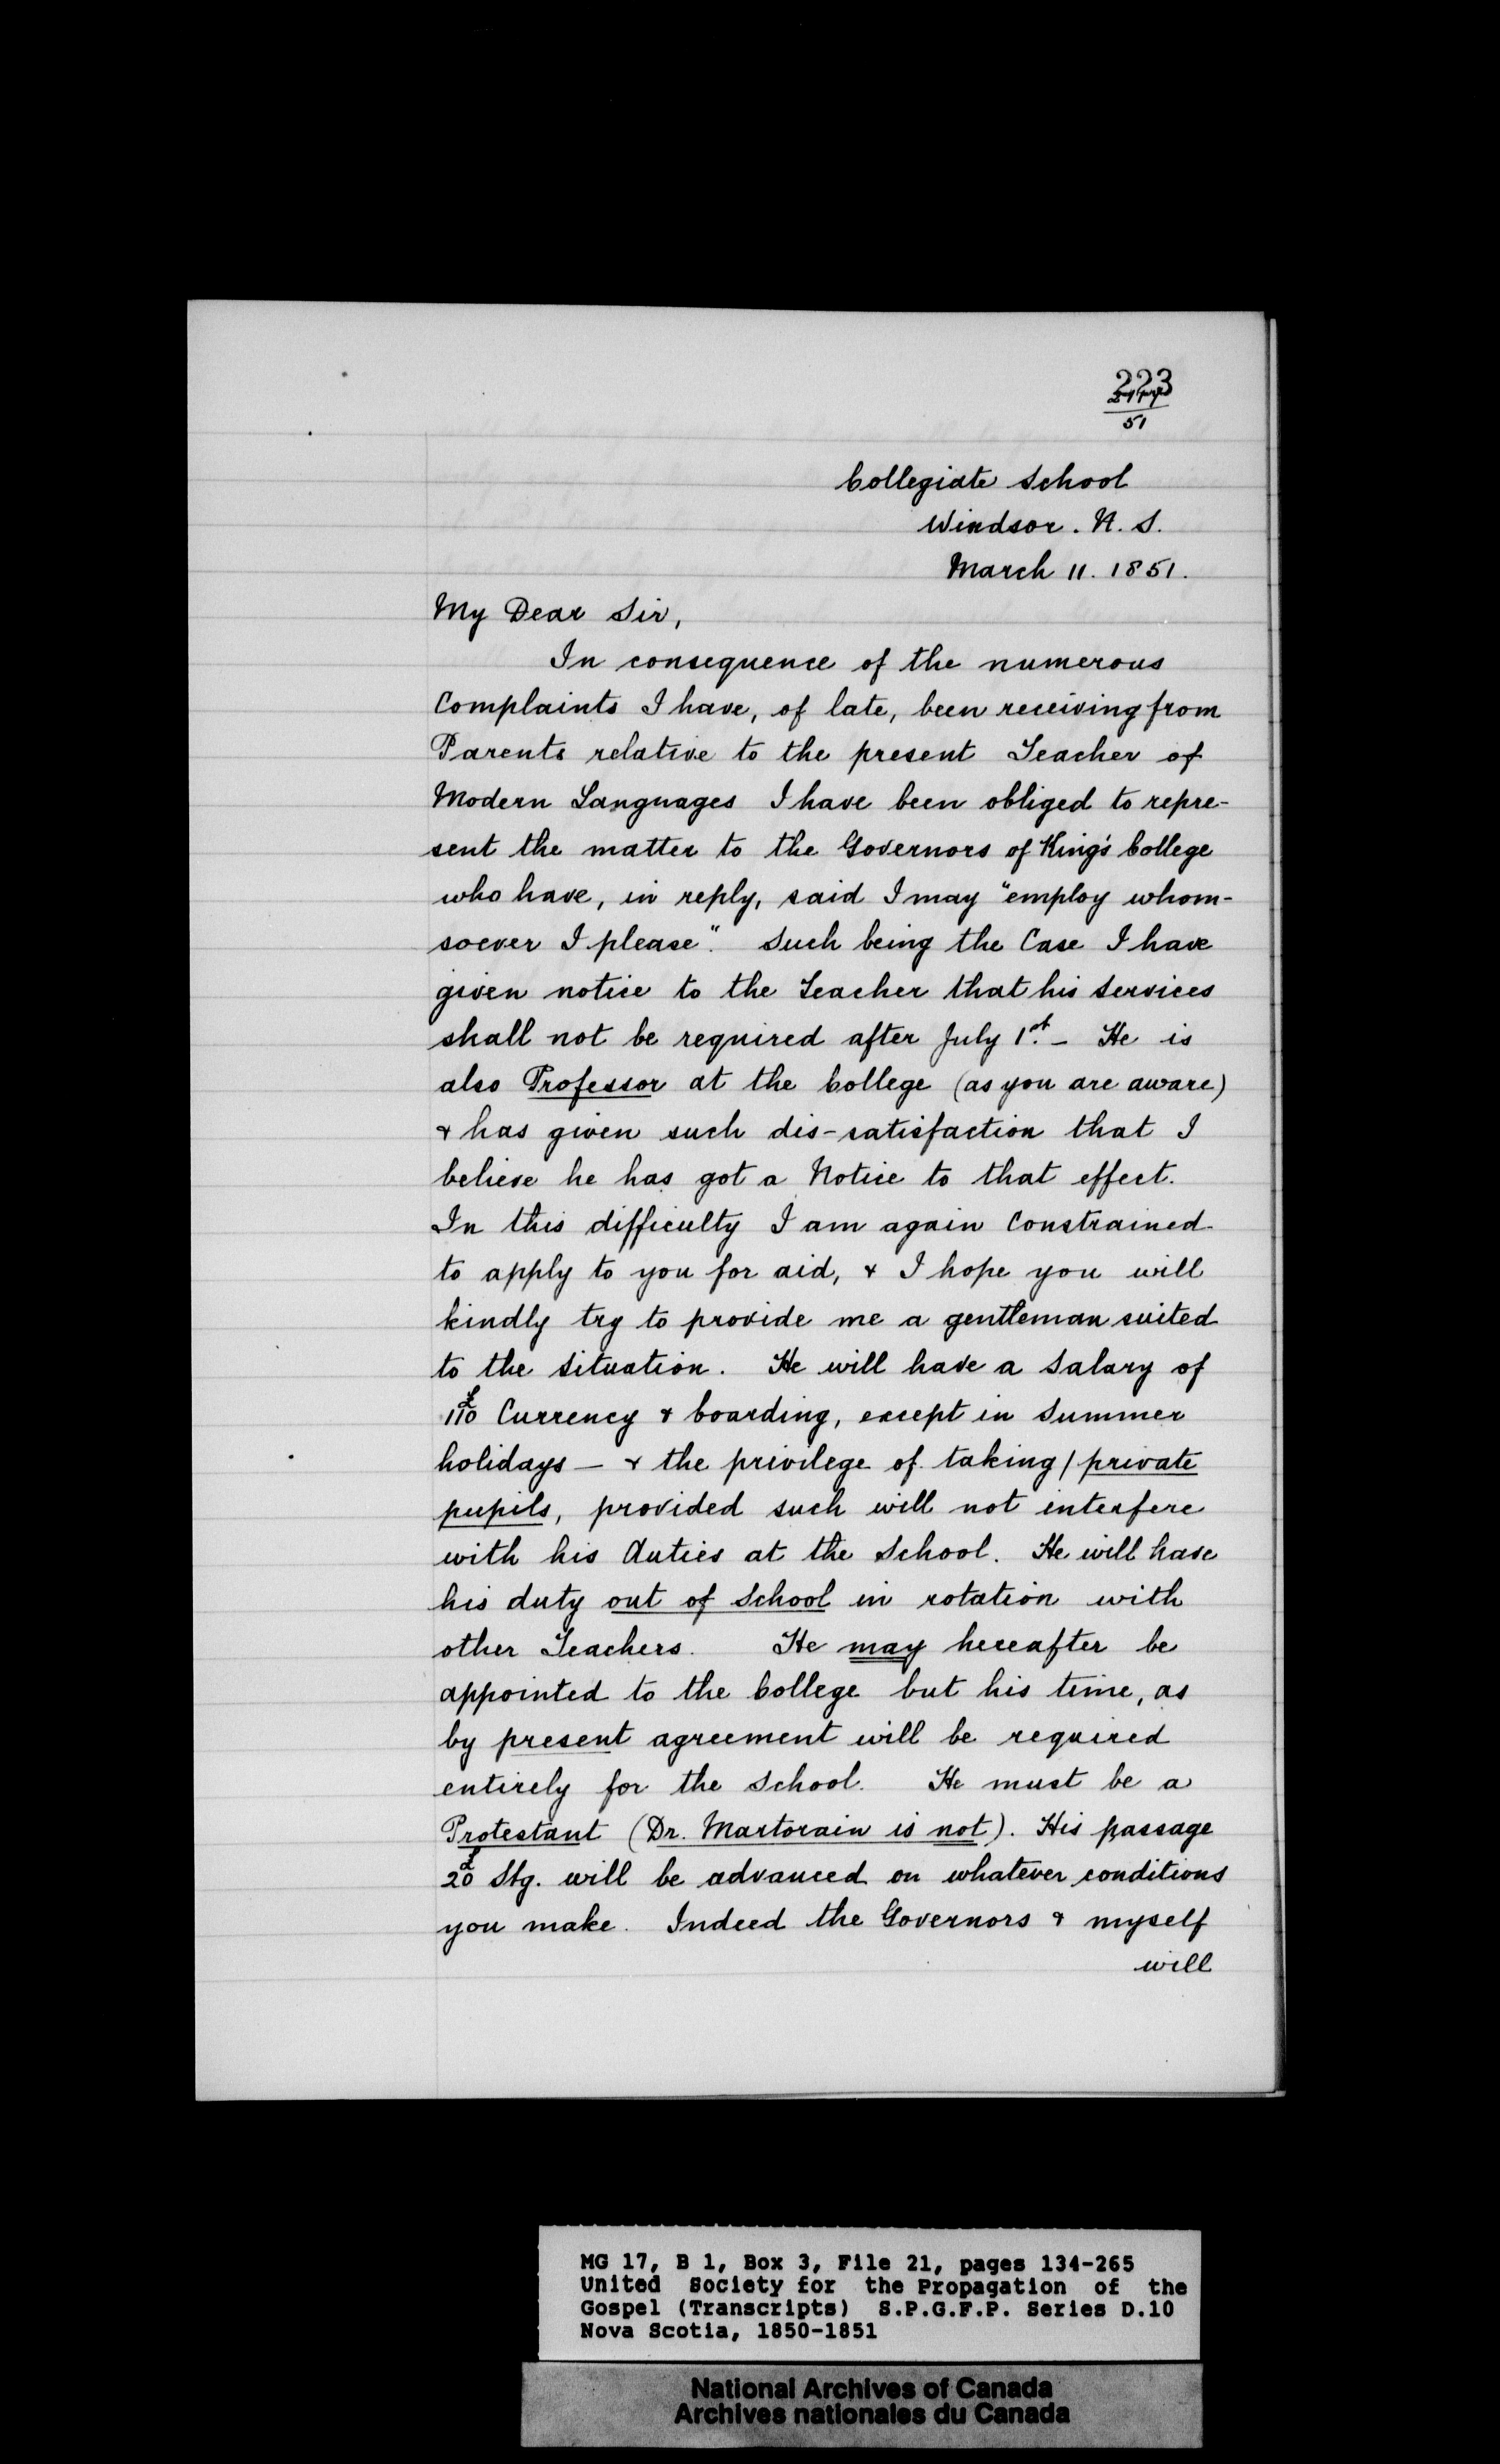 223
51
Collegiate School
Windsor. N. S.
March 11. 1851.
My Dear Sir,
In consequence of the numerous
Complaints I have, of late, been receiving from
Parents relative to the present Teacher of
Modern Languages I have been obliged to repre-
sent the matter to the Governors of King's College
who have, in reply, said I may "employ whom-
soever I please". Such being the Case I have
given notice to the Teacher that his services
shall not be required after July 1st. - He is
also Professor at the College (as you are aware)
& has given such dis-satisfaction that I
believe he has got a Notice to that effect.
In this difficulty I am again Constrained
to apply to you for aid, & I hope you will
kindly try to provide me a gentleman suited
to the situation. He will have a Salary of
£110 Currency & boarding, except in Summer
holidays — & the privilege of taking / private
pupils, provided such will not interfere
with his duties at the School. He will have
his duty out of School in rotation with
other Teachers. He may hereafter be
appointed to the College but his time, as
by present agreement will be required
entirely for the School. He must be a
Protestant (Dr. Martorain is not). His passage
£20 Stg. will be advanced on whatever conditions
you make. Indeed the Governors & myself
will
MG 17, B 1, Box 3, File 21, pages 134-265
United Society for the Propagation of the
Gospel (Transcripts) S.P.G.F.P. Series D.10
Nova Scotia, 1850-1851
National Archives of Canada
Archives nationales du Canada